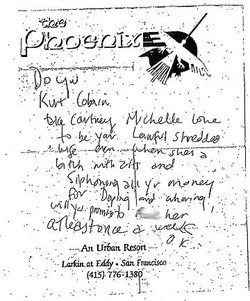 the
Phoenix
Do you
Kurt Cobain
take Courtney Michelle Love
to be your Lawful shredded
wife even when shes a
bitch with zits and
siphoning all yr money
for Doping and whoring
will you promise to her
atleast once a week
O.K
An Urban Resort
Larkin at Eddy • San Francisco
(415) 776-1380